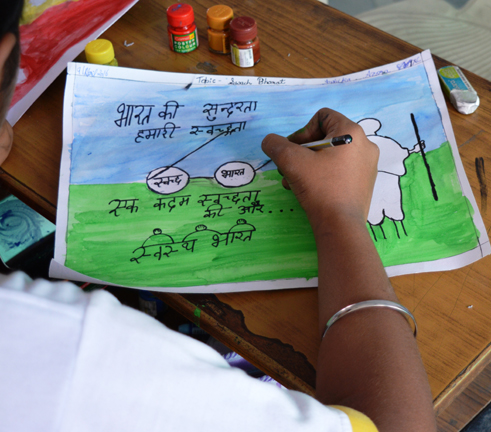 Topic - Swach Bharat
भारत की सुन्दरता
हमारी स्वच्छता
स्वच्छ भारत
एक कदम स्वच्छता
की और...
स्वस्थ भारत